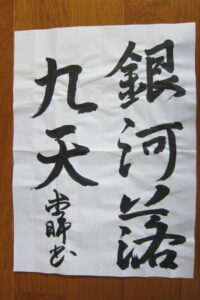 銀河落
九天